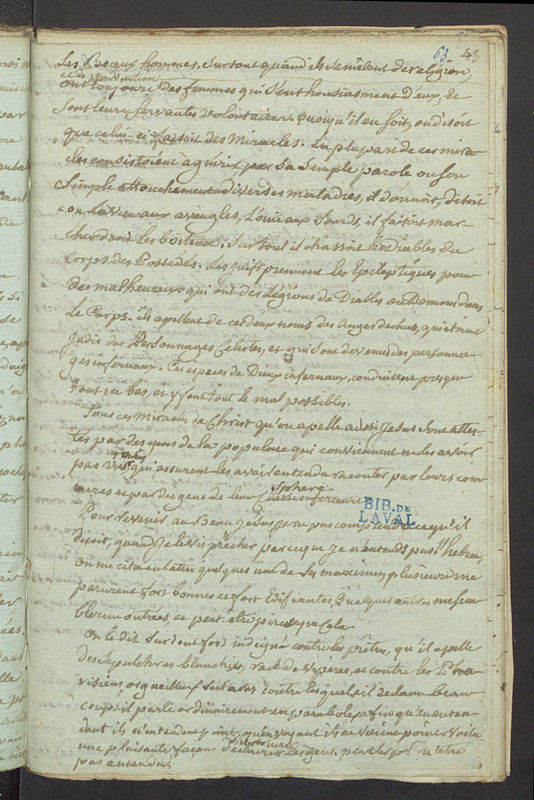 63 43
Les beaux hommes, surtout quand ils se mêlent de religion
et de prédication
ont toujours des femmes qui s'enthousiasment d'eux, et
sont leurs servantes volontaires. quoiqu'il en soit, on disoit
que celui-ci faisoit des miracles. La plupart de ces mira-
cles consistoient a guérir, par sa simple parole ou son
simple attouchement diverses maladies, il donnoit, disoit
-on la vue aux aveugles, l'ouie aux sourds, il faisoit mar-
cher droit les boiteux; surtout il chassoit les diables du
corps des Possedés. Les juifs prennent les Epileptiques pour
des malheureux qui ont des légions de Diables ou Démons dans
le corps. ils apellent de ces deux noms des anges dechus, qui étoient
jadis des Personnages Celestes, et qui sont devenus des personna-
ges infernaux. Ces especes de Dieux infernaux, conduisent presque
tout ici bas, et y font tout le mal possible.
Tous ces miracles de Christ qu'on apelle aussi Jesus sont attes-
tés par des gens de la populace qui conviennent ne les avoir
pas vus, qui assurent les avoir entendu raconter par leurs com-
meres et par des gens de leur sphere
BIB. DE
LAVAL
Pour revenir au Beau Jesus je ne pus comprendre ce qu'il
disoit, quand je le vis prêcher parceque je n'entends pas l'hebreu,
on me cita en latin quelques unes de ses maximes plusieurs me
parurent fort bonnes et fort édifiantes, quelques autres me sem-
blerent outrées, et peut être pis que cela
On le dit surtout fort indigné contre les prêtres, qu'il apelle
des sepulchres blanchis, race de viperes, et contre les Pha-
risiens, orgueilleux sectaires contre lesquels il declame beau-
coup. il parle ordinairement en paraboles afin qu'en enten-
dant ils n'entendent point, qu'en voyant ils ne voient point. voila
une plaisante façon d'instruire les gens. parler pour n'etre
pas entendu.